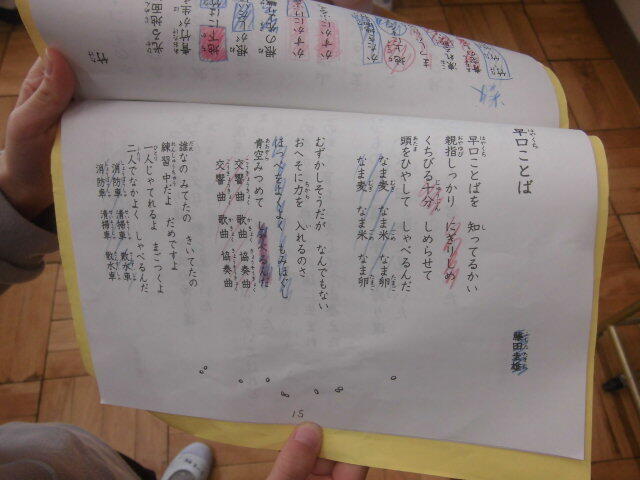 早口ことば
藤田圭雄
早口ことばを　知ってるかい
親指しっかり　にぎりしめ
くちびる十分　しめらせて
頭をひやして　しゃべるんだ
なま麦　なま米　なま卵
なま麦　なま米　なま卵
むずかしそうだが　なんでもない
おへそに力を　入れるのさ
ほっぺをよくよく　もみほぐし
青空みつめて　しゃべるんだ
交響曲　歌曲　協奏曲
交響曲　歌曲　協奏曲
誰なの　みてたの　きいてたの
練習中だよ　だめですよ
一人じゃてれるよ　まごつくよ
二人でなかよく　しゃべるんだ
消防車　清掃車　散水車
消防車　清掃車　散水車
15
竹
光る地面に
地下